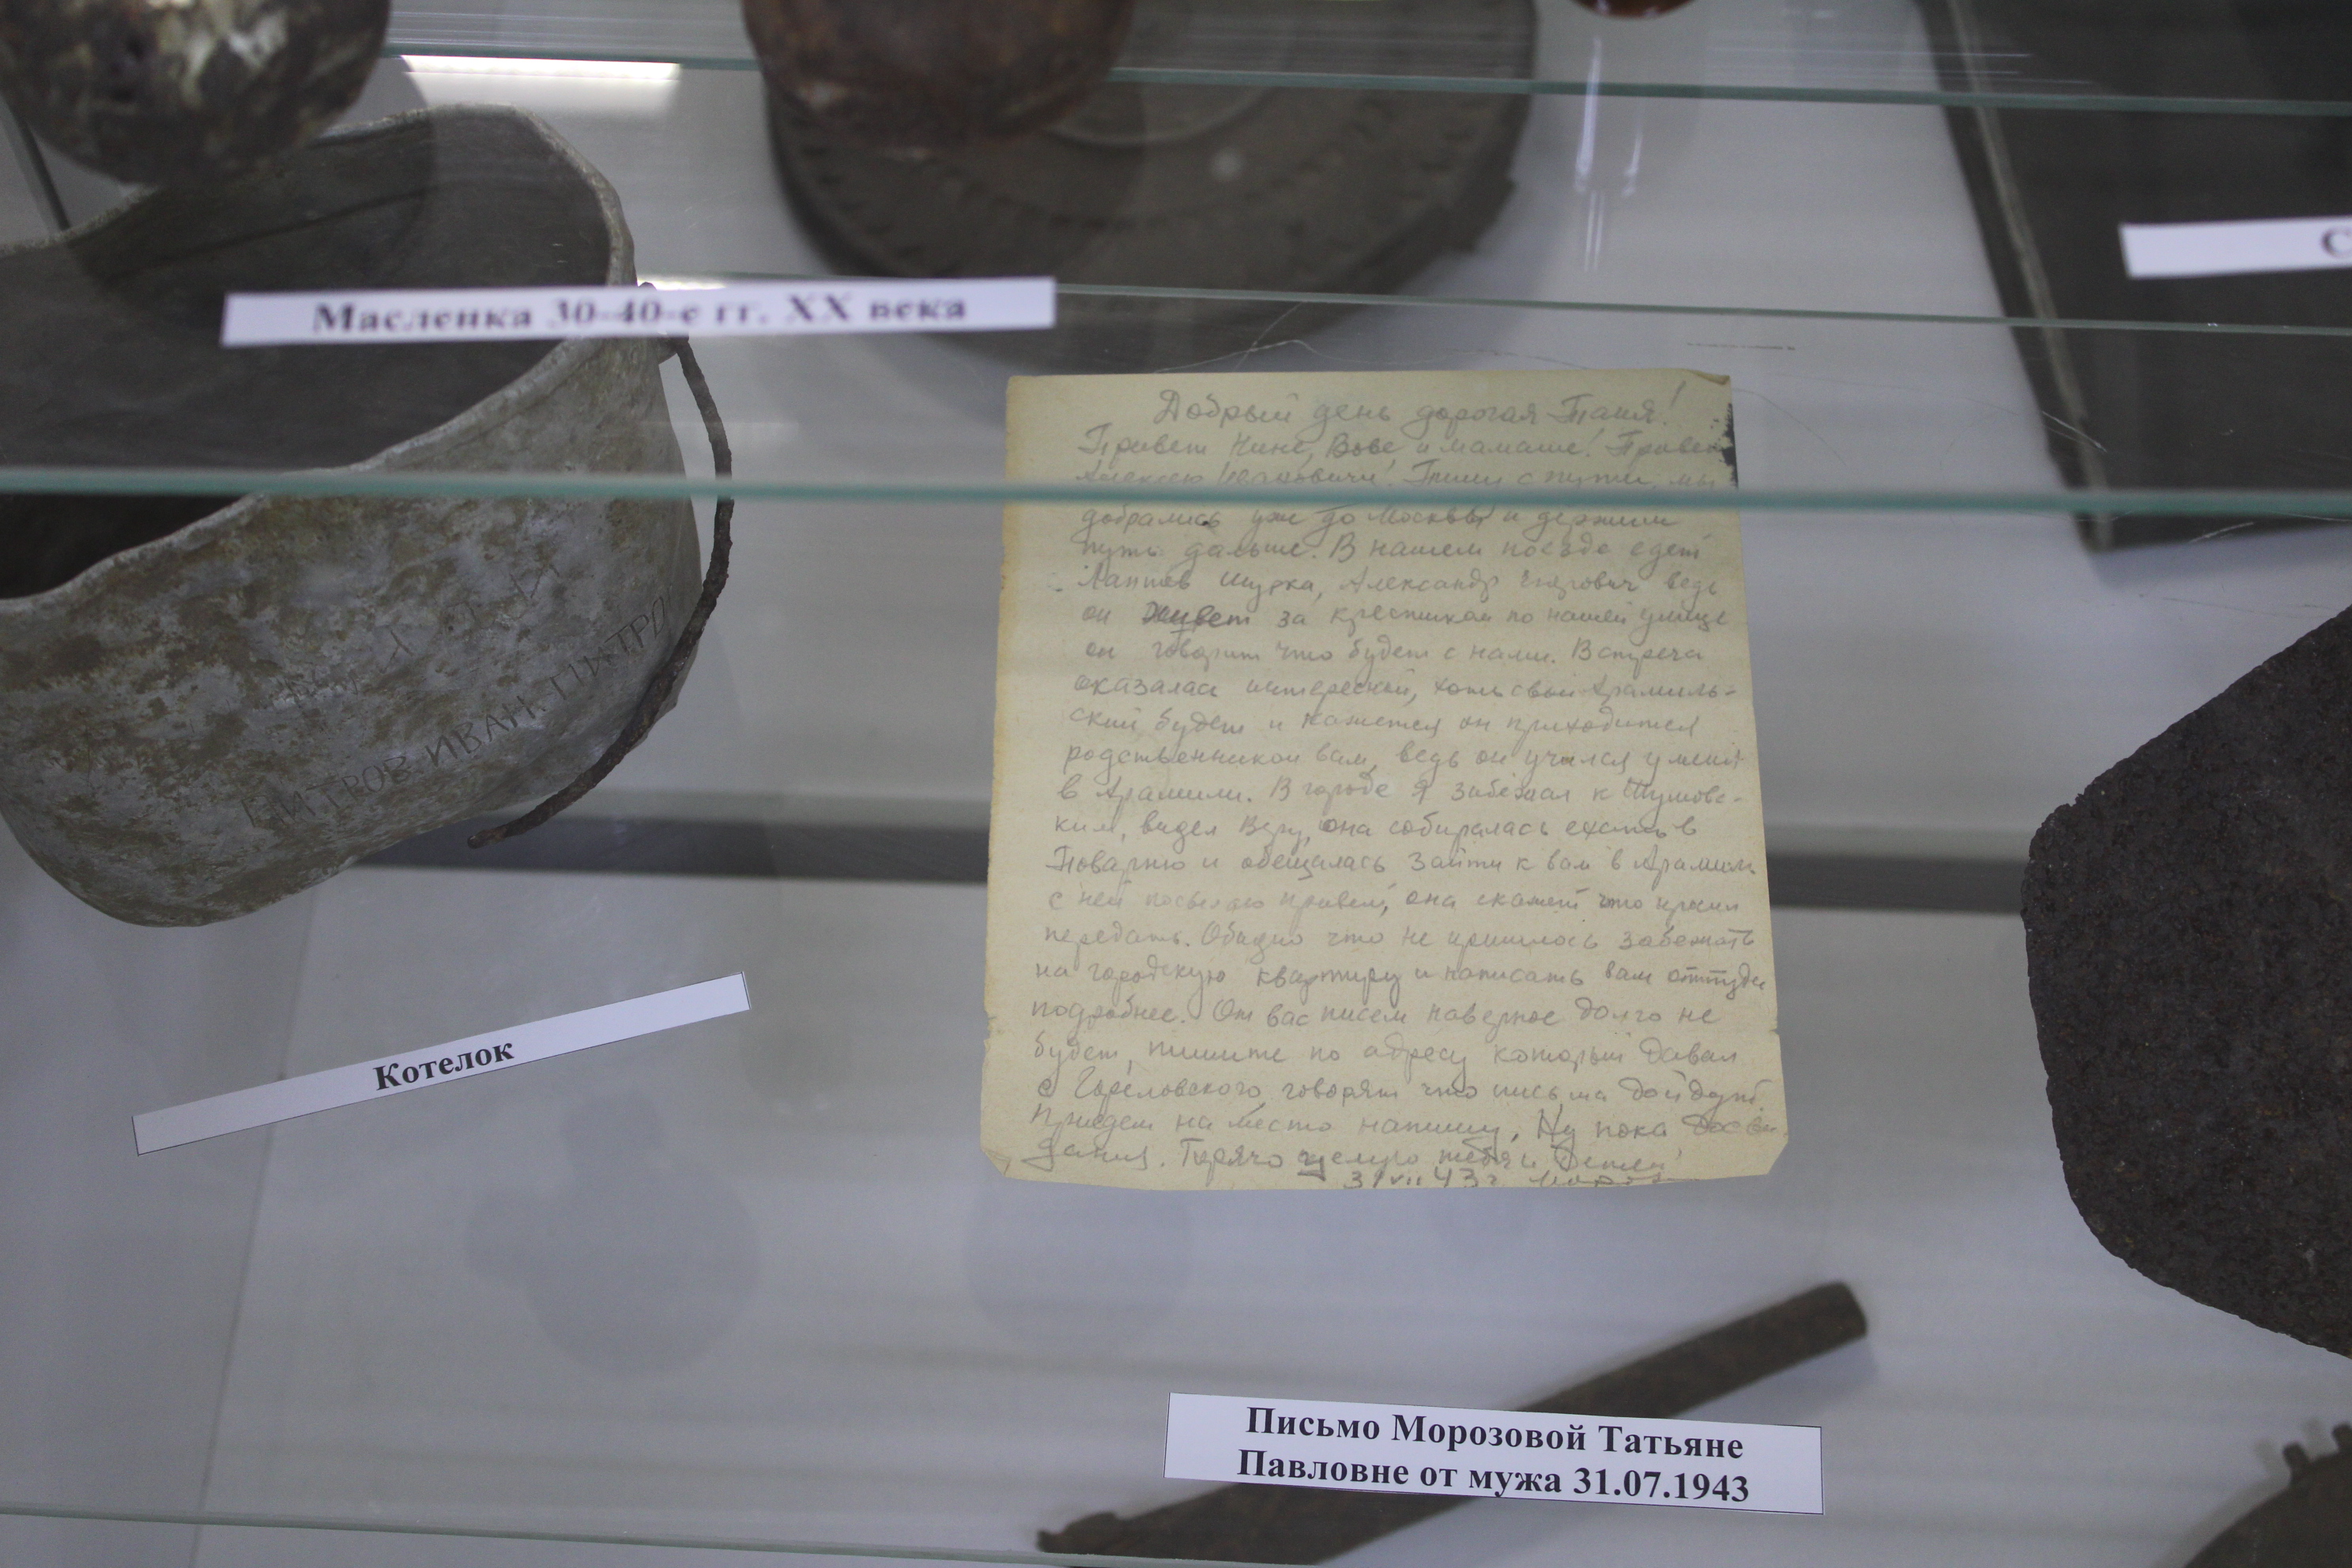 Масленка 30-40-е гг. XX века
С
Добрый день дорогая Таня!
Привет Нине, Вове, и мамаше! Привет
Алексею Ивановичу! Пишу с пути, мы
добрались уже до Москвы и держим
путь дальше. В нашем поезде едет
Лаптев Шурка, Александр Егорович ведь
он живет за крестиком по нашей улице
он говорит что будет с нами. Встреча
оказалась интересной, хоть свой Арамиль-
ский будет и кажется он приходится
родственником вам, ведь он учился у меня
в Арамили. В городе я забежал к Шумовс-
ким, видел Веру, она собиралась ехать в
Поварню и обещалась зайти к вам в Арамиль
с ней посылаю привет, она скажет что просил
передать. Обидно что не пришлось забежать
на городскую квартиру и написать вам оттуда
подробнее. От вас писем наверное долго не
будет, пишите по адресу который давал
с Гореловского, говорят что письма дойдут.
Приедем на место напишу. Ну пока до сви
дания. Горячо целую тебя и детей
31 VII 43 г
ПИТРОВ ИВАН. ПИТРО
Котелок
Письмо Морозовой Татьяне
Павловне от мужа 31.07.1943